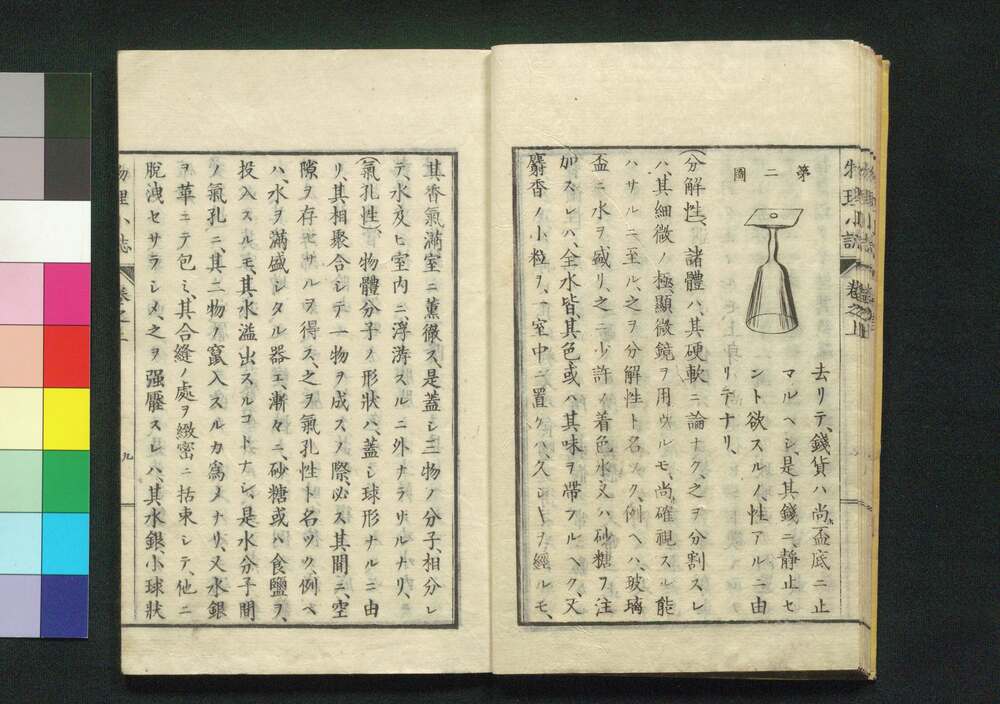 物理小誌
卷之一
第二圖
去リテ、錢貨ハ尚盃底ニ止
マルヘシ、是其錢ニ、靜止セ
ント欲スルノ、性アルニ由
リテナリ、
(分解性)、諸體ハ、其硬軟ニ論ナク、之ヲ分割スレ
ハ、其細微ノ極、顯微鏡ヲ用ウルモ、尚確視スル能
ハサルニ至ル、之ヲ分解性ト名ツク、例ヘハ、玻璃
盃ニ水ヲ盛リ、之ニ少許ノ着色水又ハ砂糖ヲ注
加スレハ、全水皆、其色或ハ其味ヲ帶フルヘク、又
麝香ノ小粒ヲ、一室中ニ置クハ、久シキヲ經ルモ、
其香氣滿室ニ薫徹ス、是蓋シ三物ノ分子、相分レ
テ、水及ヒ室内ニ、浮游スルニ外ナラサルナリ、
(氣孔性)、物體分子ノ形狀ハ、蓋シ球形ナルニ由
リ、其相聚合シテ一物ヲ成スノ際、必ス其間ニ、空
隙ヲ存セサルヲ得ス、之ヲ氣孔性ト名ツク、例ヘ
ハ、水ヲ滿盛シタル器ニ、漸々ニ、砂糖或ハ食鹽ヲ、
投入スルモ、其水溢出スルコトナシ、是水分子間
ノ氣孔ニ、其二物ノ竄入スルカ爲メナリ、又水銀
ヲ革ニテ包ミ、其合縫ノ處ヲ緻密ニ括束シテ、他ニ
脫洩セサラシメ、之ヲ强壓スレハ、其水銀、小球狀
物理小志
卷之一
九